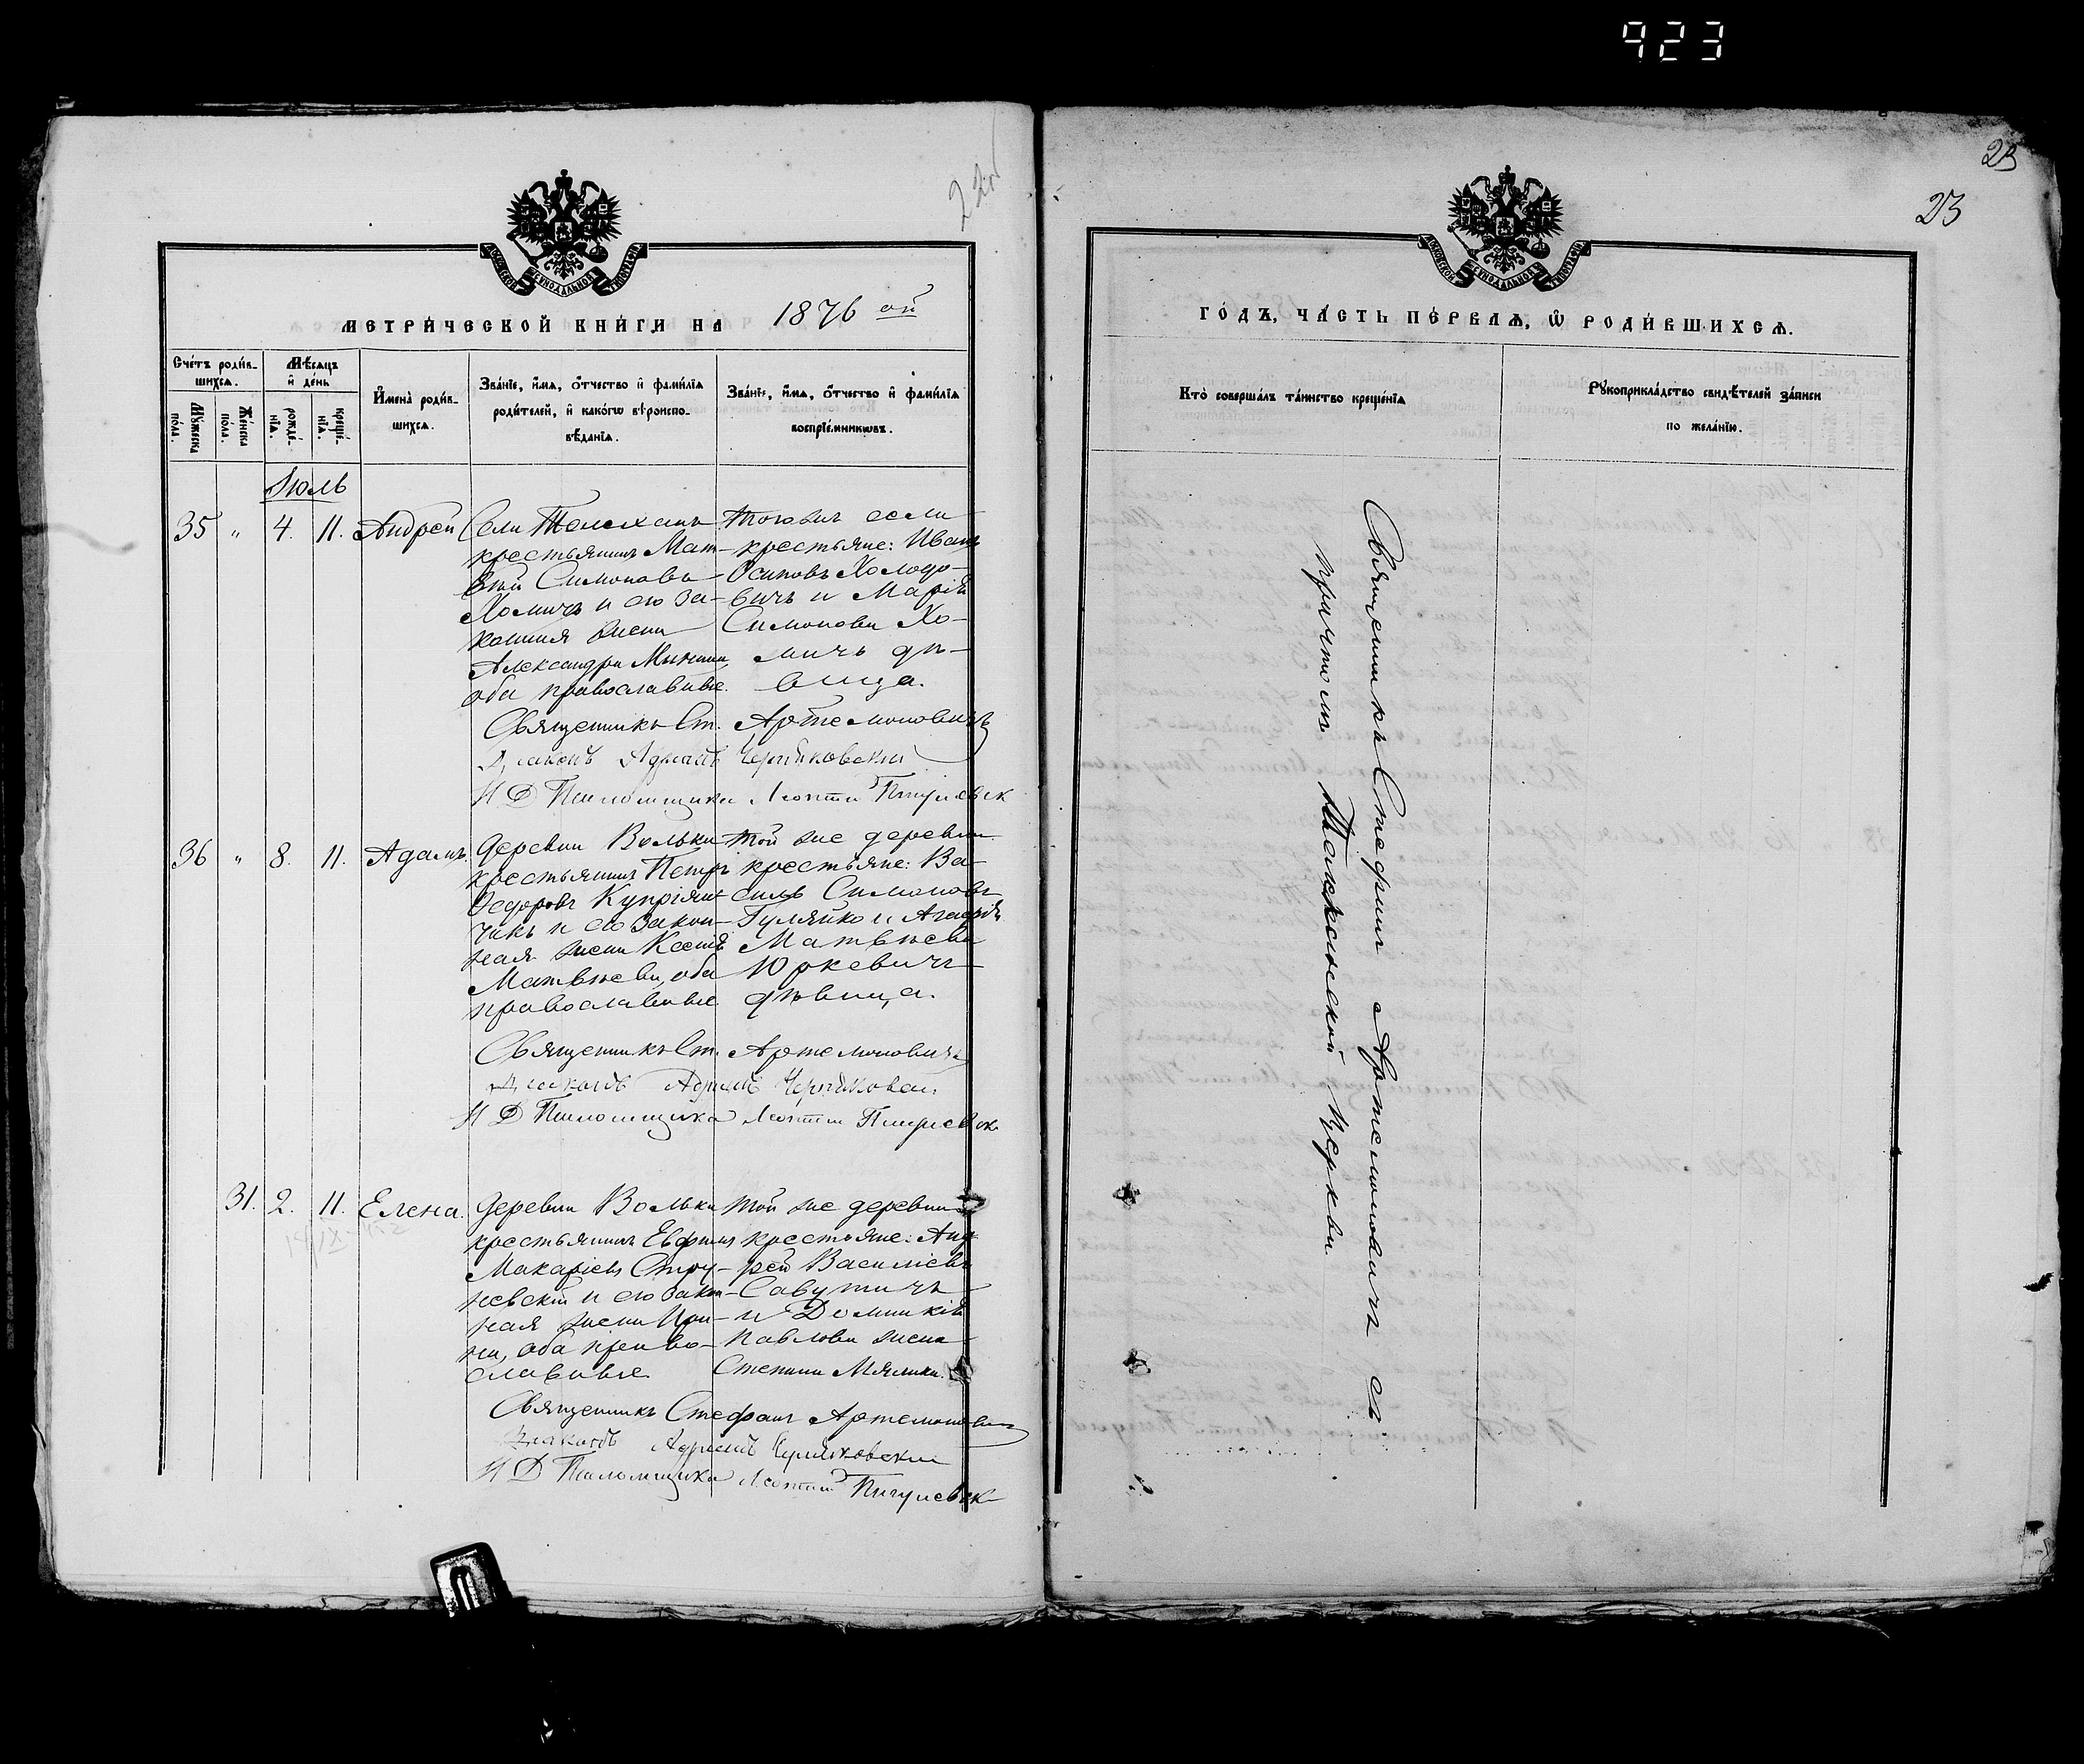 923
22об
МОСКОВСКОЙ СѴНОДАЛЬНОЙ ТИПОГРАФІИ
МЕТРИ́ЧЕСКОЙ КНИ́ГИ НА 1876 ой
Сче́тъ роди́в-
шихсѧ.
Мѹ́жеска
по́ла.
Же́нска
по́ла.
Мѣ́сѧцъ
и҆ де́нь
рожде́-
нїѧ.
креще́-
нїѧ.
И҆мена̀ роди́в-
шихсѧ.
Зва́нїе, и҆́мѧ, ѻ҆́тчество и҆ фами́лїѧ
роди́телей, и҆ како́гѡ вѣроиспо-
вѣ́данїѧ.
Зва́нїе, и҆́мѧ, ѻ҆́тчество и҆ фами́лїѧ
воспрїе́мникѡвъ.
Іюль
35 " 4. 11. Андрей
Села
крестьянинъ Мат-
вѣй Симоновъ
Хомичъ и его за-
конная жена
Александра
оба православные.
тогожъ села
крестьяне: Иванъ
Осиповъ Холодо-
вичъ и Марія
Симонова Хо-
мичъ дѣ-
вица.
Священникъ Ст. Артемоновичъ
Діаконъ Адамъ
И Д Псаломщика Леонтій Пигулевск
36 " 8. 11. Адамъ.
Деревни Вольки
крестьянинъ Петръ
Ѳедоровъ Купріян-
чикъ и его закон-
ная жена Ксенія
Матвѣева, оба
православные.
той же деревни
крестьяне: Ва-
силь Симоновъ
Гуляйко и Агафія
Матвѣева
Юркевичъ
дѣвица.
Священникъ Ст. Артемоновичъ
Діаконъ Адамъ
И Д Псаломщика Леонтій Пигулевск
31. 2. 11. Елена.
Деревни Вольки
крестьянинъ Евфимъ
Макаріевъ Стру-
невскій и его закон-
ная жена Ири-
на, оба право-
славные.
той же деревни
крестьяне: Анд-
рей Василіевъ
Савутичъ
и Доминикія
Павлова жена
Степана Мялика.
Священникъ Стефанъ Артемоновичъ
Діаконъ Адамъ
И Д Псаломщика Леонтій Пигулевск
23
23
МОСКОВСКОЙ СѴНОДАЛЬНОЙ ТИПОГРАФІИ
ГО́ДЪ, ЧА́СТЬ ПЕ́РВАѦ, Ѡ҆ РОДИ́ВШИХСѦ.
Кто̀ соверша́лъ та́инство креще́нїѧ
Рѹкоприкла́дство свидѣ́телей за́писи
по жела́нїю.
Священникъ Стефанъ Артемоновичъ съ
причтомъ Телеханской церкви.